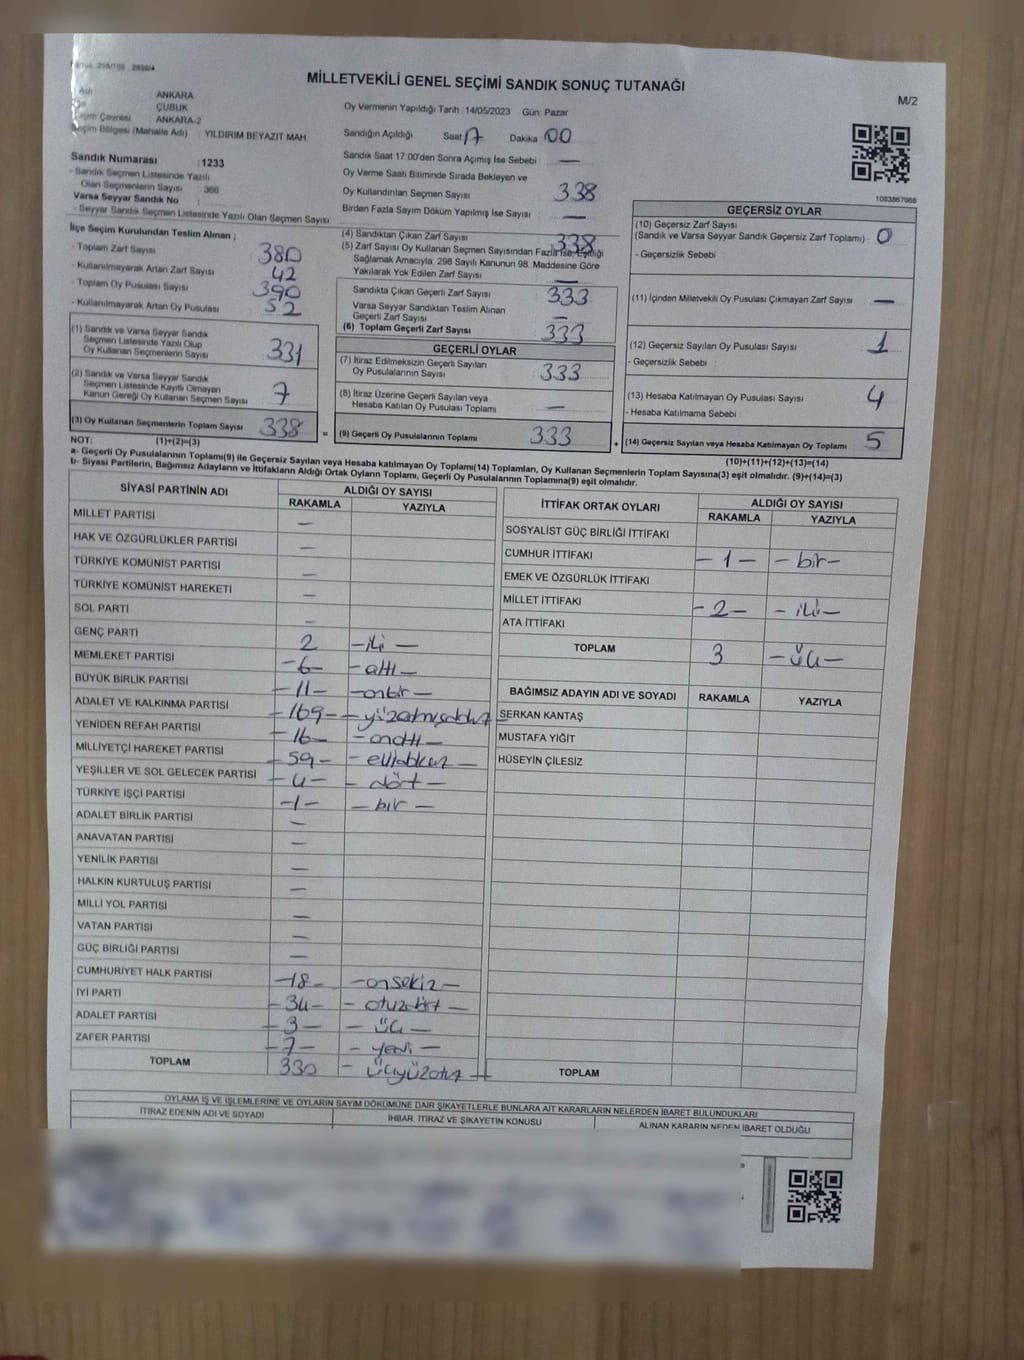 MİLLETVEKİLİ GENEL SEÇİMİ SANDIK SONUÇ TUTANAĞI
M/2
ANKARA
ÇUBUK
Seçim Çevresi ANKARA-2
Seçim Bölgesi (Mahalle Adı) : YILDIRIM BEYAZIT MAH
Oy Vermenin Yapıldığı Tarih : 14/05/2023 Gün: Pazar
Sandığın Açıldığı Saat 17 Dakika 00
Sandık Saat 17:00'den Sonra Açılmış İse Sebebi : —
Oy Verme Saati Bitiminde Sırada Bekleyen ve
Oy Kullandırılan Seçmen Sayısı : 338
Birden Fazla Sayım Döküm Yapılmış İse Sayısı : —
Sandık Numarası : 1233
- Sandık Seçmen Listesinde Yazılı
Olan Seçmenlerin Sayısı : 366
Varsa Seyyar Sandık No :
- Seyyar Sandık Seçmen Listesinde Yazılı Olan Seçmen Sayısı :
İlçe Seçim Kurulundan Teslim Alınan ;
- Toplam Zarf Sayısı : 380
- Kullanılmayarak Artan Zarf Sayısı : 42
- Toplam Oy Pusulası Sayısı : 390
- Kullanılmayarak Artan Oy Pusulası : 52
(1) Sandık ve Varsa Seyyar Sandık
Seçmen Listesinde Yazılı Olup
Oy Kullanan Seçmenlerin Sayısı : 331
(2) Sandık ve Varsa Seyyar Sandık
Seçmen Listesinde Kayıtlı Olmayan
Kanun Gereği Oy Kullanan Seçmen Sayısı : 7
(3) Oy Kullanan Seçmenlerin Toplam Sayısı : 338
(4) Sandıktan Çıkan Zarf Sayısı : 338
(5) Zarf Sayısı Oy Kullanan Seçmen Sayısından Fazla İse, Eşitliği
Sağlamak Amacıyla; 298 Sayılı Kanunun 98. Maddesine Göre
Yakılarak Yok Edilen Zarf Sayısı : —
Sandıkta Çıkan Geçerli Zarf Sayısı : 333
Varsa Seyyar Sandıktan Teslim Alınan
Geçerli Zarf Sayısı : —
(6) Toplam Geçerli Zarf Sayısı : 333
GEÇERLİ OYLAR
(7) İtiraz Edilmeksizin Geçerli Sayılan
Oy Pusulalarının Sayısı : 333
(8) İtiraz Üzerine Geçerli Sayılan veya
Hesaba Katılan Oy Pusulası Toplamı : —
= (9) Geçerli Oy Pusulalarının Toplamı : 333
1083867988
GEÇERSİZ OYLAR
(10) Geçersiz Zarf Sayısı
(Sandık ve Varsa Seyyar Sandık Geçersiz Zarf Toplamı) : 0
- Geçersizlik Sebebi :
(11) İçinden Milletvekili Oy Pusulası Çıkmayan Zarf Sayısı : —
(12) Geçersiz Sayılan Oy Pusulası Sayısı : 1
- Geçersizlik Sebebi :
(13) Hesaba Katılmayan Oy Pusulası Sayısı : 4
- Hesaba Katılmama Sebebi :
+ (14) Geçersiz Sayılan veya Hesaba Katılmayan Oy Toplamı : 5
NOT: (1)+(2)=(3)
(10)+(11)+(12)+(13)=(14)
a- Geçerli Oy Pusulalarının Toplamı(9) ile Geçersiz Sayılan veya Hesaba katılmayan Oy Toplamı(14) Toplamları, Oy Kullanan Seçmenlerin Toplam Sayısına(3) eşit olmalıdır. (9)+(14)=(3)
b- Siyasi Partilerin, Bağımsız Adayların ve İttifakların Aldığı Ortak Oyların Toplamı, Geçerli Oy Pusulalarının Toplamına(9) eşit olmalıdır.
SİYASİ PARTİNİN ADI ALDIĞI OY SAYISI
RAKAMLA YAZIYLA
MİLLET PARTİSİ —
HAK VE ÖZGÜRLÜKLER PARTİSİ —
TÜRKİYE KOMÜNİST PARTİSİ —
TÜRKİYE KOMÜNİST HAREKETİ —
SOL PARTİ —
GENÇ PARTİ 2 —iki—
MEMLEKET PARTİSİ —6— —altı—
BÜYÜK BİRLİK PARTİSİ —11— —onbir—
ADALET VE KALKINMA PARTİSİ —169— —yüzaltmışdokuz
YENİDEN REFAH PARTİSİ —16— —onaltı—
MİLLİYETÇİ HAREKET PARTİSİ —59— —ellidokuz—
YEŞİLLER VE SOL GELECEK PARTİSİ —4— —dört—
TÜRKİYE İŞÇİ PARTİSİ —1— —bir—
ADALET BİRLİK PARTİSİ —
ANAVATAN PARTİSİ —
YENİLİK PARTİSİ —
HALKIN KURTULUŞ PARTİSİ —
MİLLİ YOL PARTİSİ —
VATAN PARTİSİ —
GÜÇ BİRLİĞİ PARTİSİ —
CUMHURİYET HALK PARTİSİ —18— —onsekiz—
İYİ PARTİ —34— —otuzdört—
ADALET PARTİSİ —3— —üç—
ZAFER PARTİSİ —7— —yedi—
TOPLAM 330 —üçyüzotuz—
İTTİFAK ORTAK OYLARI ALDIĞI OY SAYISI
RAKAMLA YAZIYLA
SOSYALİST GÜÇ BİRLİĞİ İTTİFAKI
CUMHUR İTTİFAKI —1— —bir—
EMEK VE ÖZGÜRLÜK İTTİFAKI
MİLLET İTTİFAKI —2— —iki—
ATA İTTİFAKI
TOPLAM 3 —üç—
BAĞIMSIZ ADAYIN ADI VE SOYADI RAKAMLA YAZIYLA
SERKAN KANTAŞ
MUSTAFA YİĞİT
HÜSEYİN ÇİLESİZ
TOPLAM
OYLAMA İŞ VE İŞLEMLERİNE VE OYLARIN SAYIM DÖKÜMÜNE DAİR ŞİKAYETLERLE BUNLARA AİT KARARLARIN NELERDEN İBARET BULUNDUKLARI
İTİRAZ EDENİN ADI VE SOYADI İHBAR, İTİRAZ VE ŞİKAYETİN KONUSU ALINAN KARARIN NEDEN İBARET OLDUĞU